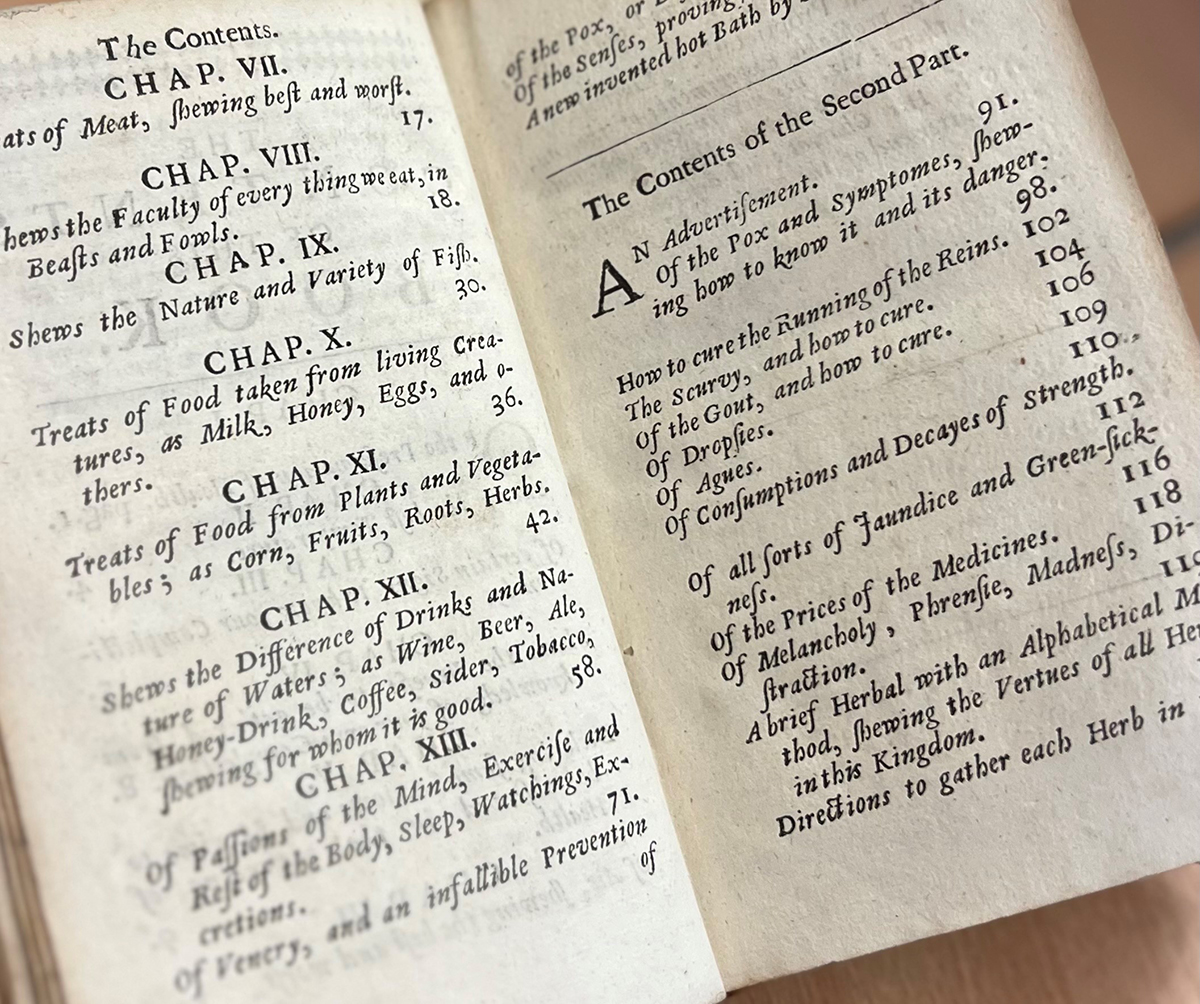 The Contents.
CHAP. VII.
ats of Meat, ſhewing beſt and worſt.
17.
CHAP. VIII.
hews the Faculty of every thing we eat, in
Beaſts and Fowls.
18.
CHAP. IX.
Shews the Nature and Variety of Fiſh.
30.
CHAP. X.
Treats of Food taken from living Crea-
tures, as Milk, Honey, Eggs, and o-
thers.
36.
CHAP. XI.
Treats of Food from Plants and Vegeta-
bles; as Corn, Fruits, Roots, Herbs.
42.
CHAP. XII.
Shews the Difference of Drinks and Na-
ture of Waters; as Wine, Beer, Ale,
Honey-Drink, Coffee, Sider, Tobacco,
ſhewing for whom it is good.
58.
CHAP. XIII.
Of Paſſions of the Mind, Exerciſe and
Reſt of the Body, Sleep, Watchings, Ex-
cretions.
71.
Of Venery, and an infallible Prevention
of
of the Pox, or
Of the Senſes, proving
A new invented hot Bath by
The Contents of the Second Part.
AN Advertiſement.
91.
Of the Pox and Symptomes, ſhew-
ing how to know it and its danger.
98.
How to cure the Running of the Reins. 102
The Scurvy, and how to cure. 104
Of the Gout, and how to cure. 106
Of Dropſies. 109
Of Agues. 110
Of Conſumptions and Decayes of Strength.
112
Of all ſorts of Jaundice and Green-ſick-
neſs. 116
Of the Prices of the Medicines. 118
Of Melancholy, Phrenſie, Madneſs, Di-
ſtraction.
A brief Herbal with an Alphabetical M
thod, ſhewing the Vertues of all He
in this Kingdom.
Directions to gather each Herb in